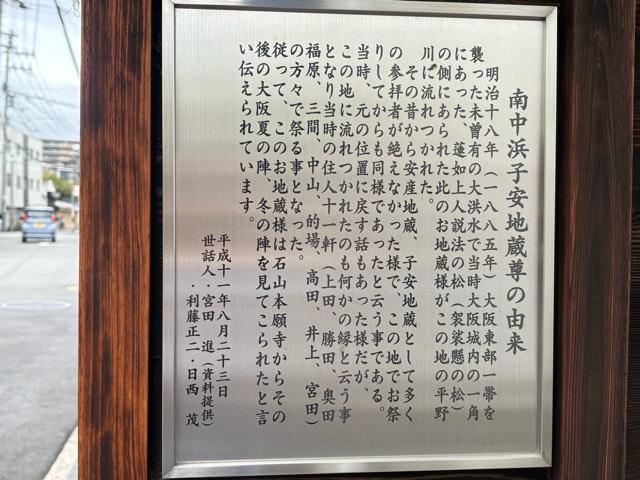 南中浜子安地蔵尊の由来
明治十八年（一八八五年）大阪東部一帯を
襲った未曽有の大洪水で当時大阪城内の一角
にあった、蓮如上人説法の松（袈裟懸の松）
の側にあられた此のお地蔵様がこの地の平野
川に流れつかれた。
その昔から安産地蔵、子安地蔵として多く
の参拝者が絶えなかった様で、この地でお祭
りしてからも同様であったと云う事である。
当時、元の位置に戻す話もあった様だが、
この地に流れつかれたのも何かの縁と云う事
となり当時の住人十一軒（上田、勝田、奥田
福原、三間、中山、的場、高田、井上、宮田）
の方々で祭る事となった。
従って、このお地蔵様は石山本願寺からその
後の大阪夏の陣、冬の陣を見てこられたと言
い伝えられています。
平成十一年八月二十三日
世話人・宮田　進（資料提供）
・利藤正二・日西　茂